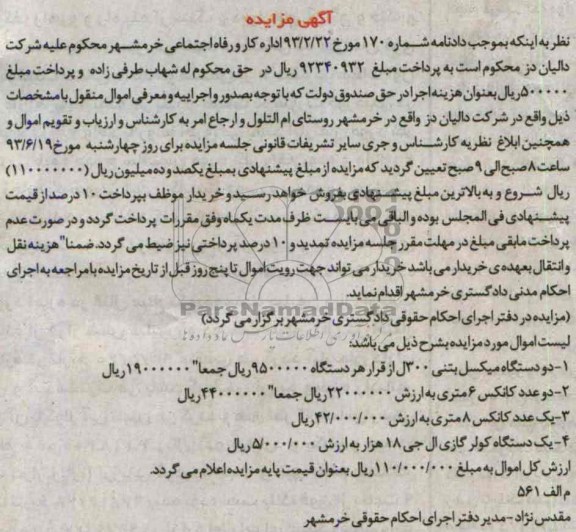 آگهی مزایده
نظر به اینکه بموجب دادنامه شماره ۱۷۰ مورخ ۹۳/۲/۲۲ اداره کار و رفاه اجتماعی خرمشهر محکوم علیه شرکت
دالیان دز محکوم است به پرداخت مبلغ ۹۲۳۴۰۹۳۲ ریال در حق محکوم له شهاب طرفی زاده و پرداخت مبلغ
۵۰۰۰۰۰ ریال بعنوان هزینه اجرا در حق صندوق دولت که با توجه بصدور و اجراییه و معرفی اموال منقول با مشخصات
ذیل واقع در شرکت دالیان دز واقع در خرمشهر روستای ام التلول و ارجاع امر به کارشناس و ارزیاب و تقویم اموال و
همچنین ابلاغ نظریه کارشناس و جری سایر تشریفات قانونی جلسه مزایده برای روز چهارشنبه مورخ ۹۳/۶/۱۹
ساعت ۸ صبح الی ۹ صبح تعیین گردید که مزایده از مبلغ پیشنهادی بمبلغ یکصد و ده میلیون ریال (۱۱۰۰۰۰۰۰۰)
ریال شروع و به بالاترین مبلغ پیشنهادی بفروش خواهد رسید و خریدار موظف بپرداخت ۱۰ درصد از قیمت
پیشنهادی فی المجلس بوده و الباقی می بایست ظرف مدت یکماه وفق مقررات پرداخت گردد و در صورت عدم
پرداخت مابقی مبلغ در مهلت مقرر جلسه مزایده تمدید و ۱۰ درصد پرداختی نیز ضبط می گردد. ضمنا" هزینه نقل
و انتقال بعهده ی خریدار می باشد خریدار می تواند جهت رویت اموال تا پنج روز قبل از تاریخ مزایده با مراجعه به اجرای
احکام مدنی دادگستری خرمشهر اقدام نماید.
ParsNamadData
(مزایده در دفتر اجرای احکام حقوقی دادگستری خرمشهر برگزار می گردد)
لیست اموال مورد مزایده بشرح ذیل می باشد:
۱-دو دستگاه میکسل بتنی ۳۰۰ ل از قرار هر دستگاه ۹۵۰۰۰۰۰ ریال جمعا" ۱۹۰۰۰۰۰۰ ریال
۲-دو عدد کانکس ۶ متری به ارزش ۲۲۰۰۰۰۰۰ ریال جمعا" ۴۴۰۰۰۰۰۰ ریال
۳-یک عدد کانکس ۸ متری به ارزش ۴۲/۰۰۰/۰۰۰ ریال
۴-یک دستگاه کولر گازی ال جی ۱۸ هزار به ارزش ۵/۰۰۰/۰۰۰ ریال
ارزش کل اموال به مبلغ ۱۱۰/۰۰۰/۰۰۰ ریال بعنوان قیمت پایه مزایده اعلام می گردد.
م الف ۵۶۱
مقدس نژاد-مدیر دفتر اجرای احکام حقوقی خرمشهر